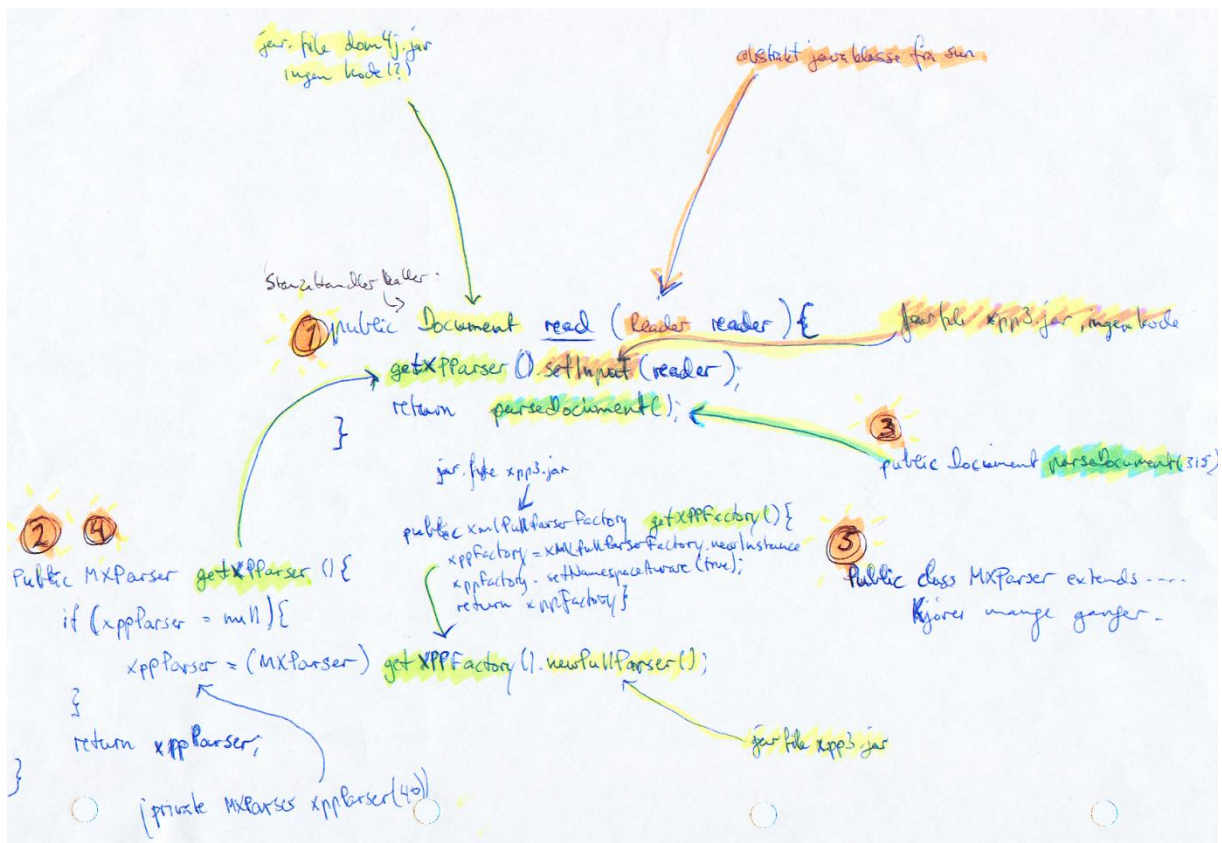 jar. file dom4j.jar
ingen kode(?)
abstrakt javaklasse fra sun
StanzaHandler kaller:
1 public Document read (Reader reader) {
getXPParser().setInput(reader);
return parseDocument();
}
jar file xpp3.jar, ingen kode
3
public Document parseDocument(315)
jar. fyle xpp3.jar
public xmlPullParserFactory getXPPFactory() {
xppFactory = XMLPullParserFactory.newInstance
xppFactory. setNamespaceAware (true);
return xppFactory}
2 4
Public MXParser getXPParser () {
if (xppParser = null) {
xppParser = (MXParser) getXPPFactory().newPullParser();
}
return xppParser;
}
(private MXParser xppParser(40))
jar file xpp3.jar
5
Public class MXParser extends -----
Kjører mange ganger.